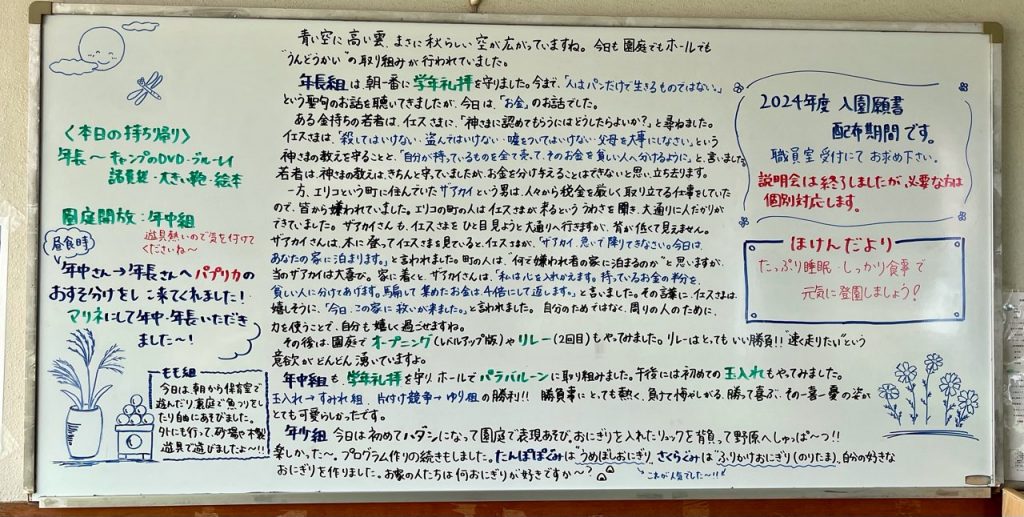 青い空に高い雲、まさに秋らしい空が広がっていますね。今日も園庭でもホールでも
"うんどうかい"の取り組みが行われていました。
年長組は朝一番に学年礼拝を守りました。今まで、「人はパンだけで生きるものではない。」
という聖句のお話を聴いてきましたが、今日は、「お金」のお話でした。
ある金持ちの若者は、イエスさまに、"神さまに認めてもらうにはどうしたらよいか?"と尋ねました。
イエスさまは、「殺してはいけない・盗んではいけない・嘘をついてはいけない・父母を大事にしなさい。」という
神さまの教えを守ることと、「自分が持っているものを全て売って、そのお金を貧しい人へ分けるように」と、言いました。
若者は、神さまの教えはきちんと守っていましたが、お金を分け与えることはできないと思い、立ち去ります。
一方、エリコという町に住んでいたザアカイという男は、人々から税金を厳しく取り立てる仕事をしていた
ので、皆から嫌われていました。エリコの町の人はイエスさまが来るといううわさを聞き、大通りに人だかりが
できていました。ザアカイさんも、イエスさまをひと目見ようと大通りへ行きますが、背が低くて見えません。
ザアカイさんは、木に登ってイエスさまを見ていると、イエスさまが、「ザアカイ、急いで降りてきなさい。今日は、
あなたの家に泊まります。」と言われました。町の人は、"何で嫌われ者の家に泊まるのか"と思いますが、
当のザアカイは大喜び。家に着くと、ザアカイさんは、「私は心を入れかえます。持っているお金の半分を
貧しい人に分けてあげます。騙して集めたお金は4倍にして返します。」と言いました。その言葉に、イエスさまは
嬉しそうに、「今日、この家に救いが来ました。」と言われました。自分のためではなく、周りの人のために、
力を使うことで、自分も嬉しく過ごせますね。
その後は、園庭でオープニング(レベルアップ版)やリレー(2回目)もやってみました。リレーはとってもいい勝負!!"速く走りたい"という
意欲がどんどん湧いていますよ。
年中組も、学年礼拝を守り、ホールでパラバルーンに取り組みました。午後には初めての玉入れもやってみました。
玉入れ→すみれ組、片付け競争→ゆり組の勝利!! 勝負事にとっても熱く、負けて悔やしがる、勝って喜ぶ、その一喜一憂の姿が
とても可愛らしかったです。
年少組 今日は初めてハダシになって園庭で表現あそび。おにぎりを入れたリュックを背負って野原へしゅっぱ〜つ!!
楽しかった〜。プログラム作りの続きもしました。たんぽぽぐみは"うめぼしおにぎり、さくらぐみは"ふりかけおにぎり(のりたま)、自分の好きな
おにぎりを作りました。お家の人たちは何おにぎりが好きですか〜?
これが人気でした〜!!
<本日の持ち帰り>
年長〜キャンプのDVD・ブルーレイ
諸費袋・大きい鞄・絵本
園庭開放:年中組
遊具熱いので気を付けて
くださいね〜
昼食時
年中さん→年長さんへパプリカの
おすそ分けをしに来てくれました!
マリネにして年中・年長いただき
ました〜!
もも組
今日は、朝から保育室で
遊んだり裏庭で魚つりをし
たり自由にあそびました。
外にも行って、砂場や木製
遊具で遊びましたよ〜!!
2024年度 入園願書
配布期間です。
職員室受付にてお求め下さい。
説明会は終了しましたが、必要な方は
個別対応します。
ほけんだより
たっぷり睡眠・しっかり食事で
元気に登園しましょう!